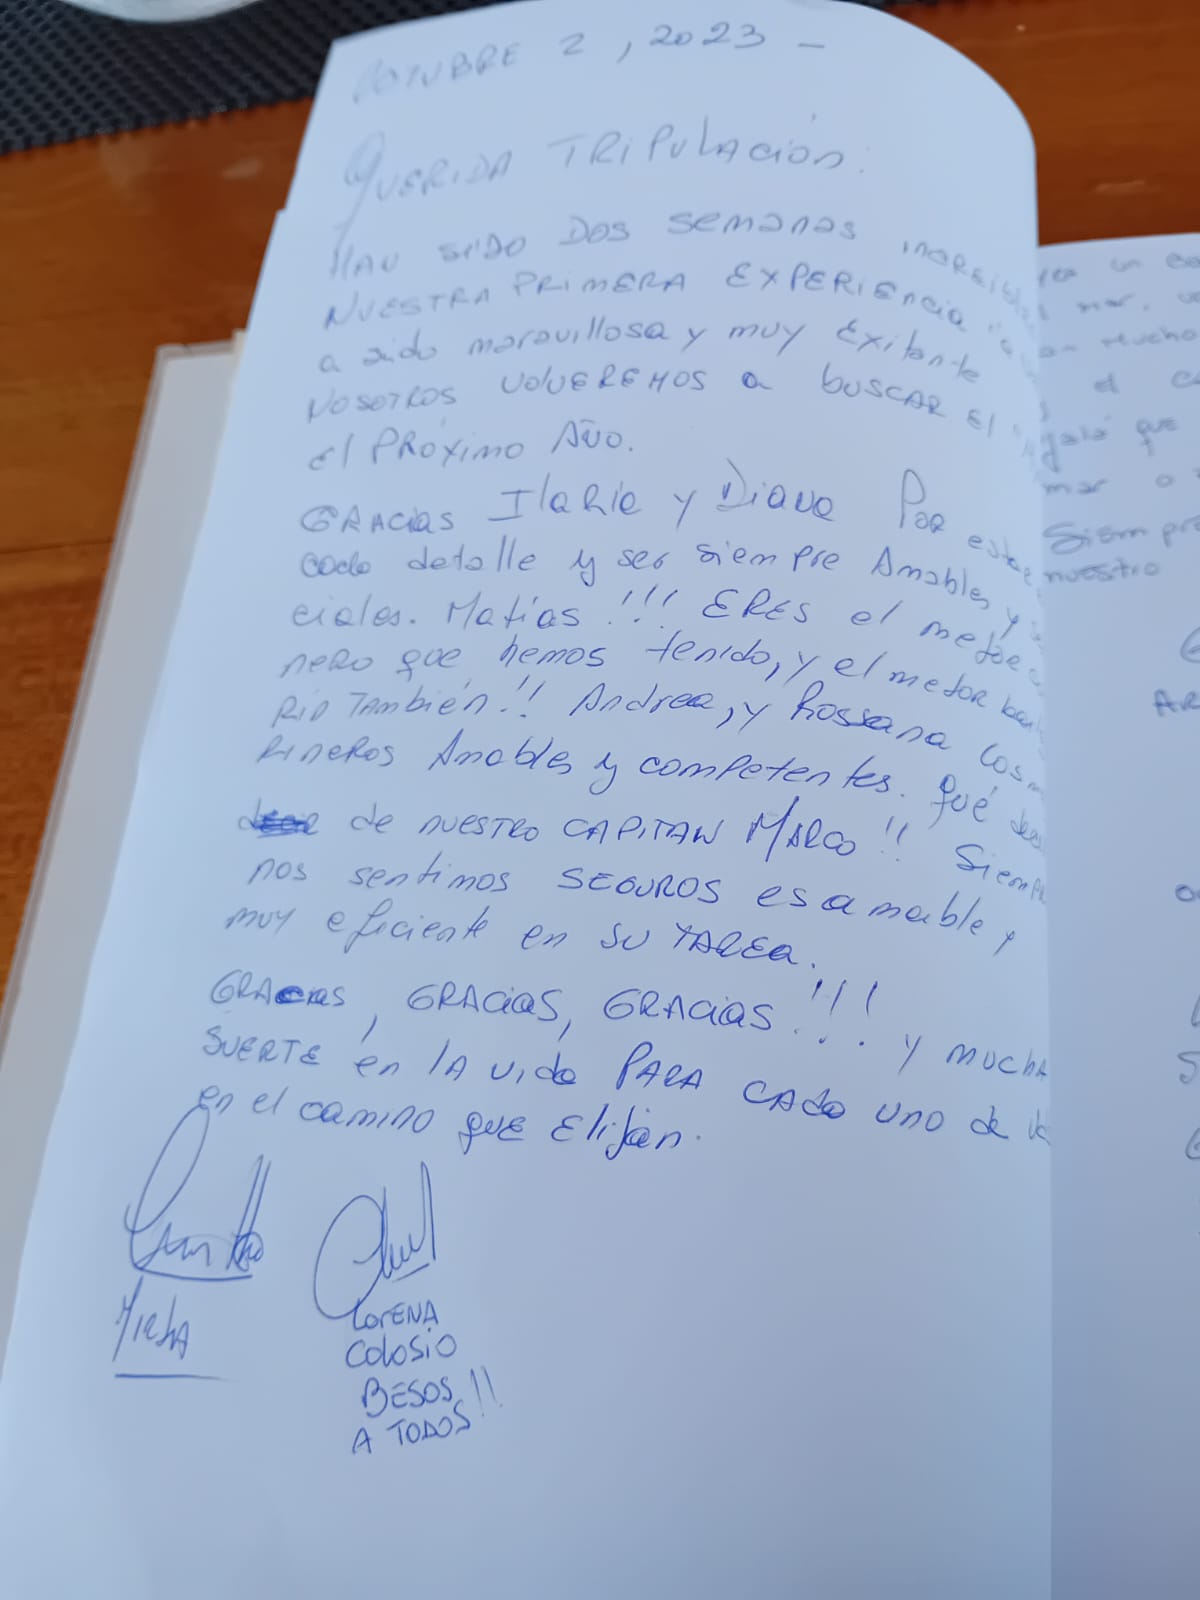 OCTUBRE 2, 2023 -
QUERIDA TRIPULACIÓN:
HAN SIDO DOS SEMANAS INCREIBLES
NUESTRA PRIMERA EXPERIENCIA
a sido maravillosa y muy Exitante
NOSOTROS VOLVEREMOS a buscar El
El PRÓXIMO AÑO.
GRACIAS Ilaria y Diana Por estar
cada detalle y ser siempre Amables y
ciales. Matías !!! ERES el mejor
nero que hemos tenido, y el mejor
RIO También!! Andrea, y Rossana los m
RINEROS Amables y competentes. Qué
de nuestro CAPITAN MARCO!! Siempre
nos sentimos SEGUROS es amable y
muy eficiente en su TAREA.
GRACIAS, GRACIAS, GRACIAS!!! y mucha
SUERTE en LA vida PARA CADA uno de
en el camino que Elijan.
Mirta
LORENA
COLOSIO
BESOS!!
A TODOS
mar.
mucho
el
que
mar o
Siempre
nuestro
AR